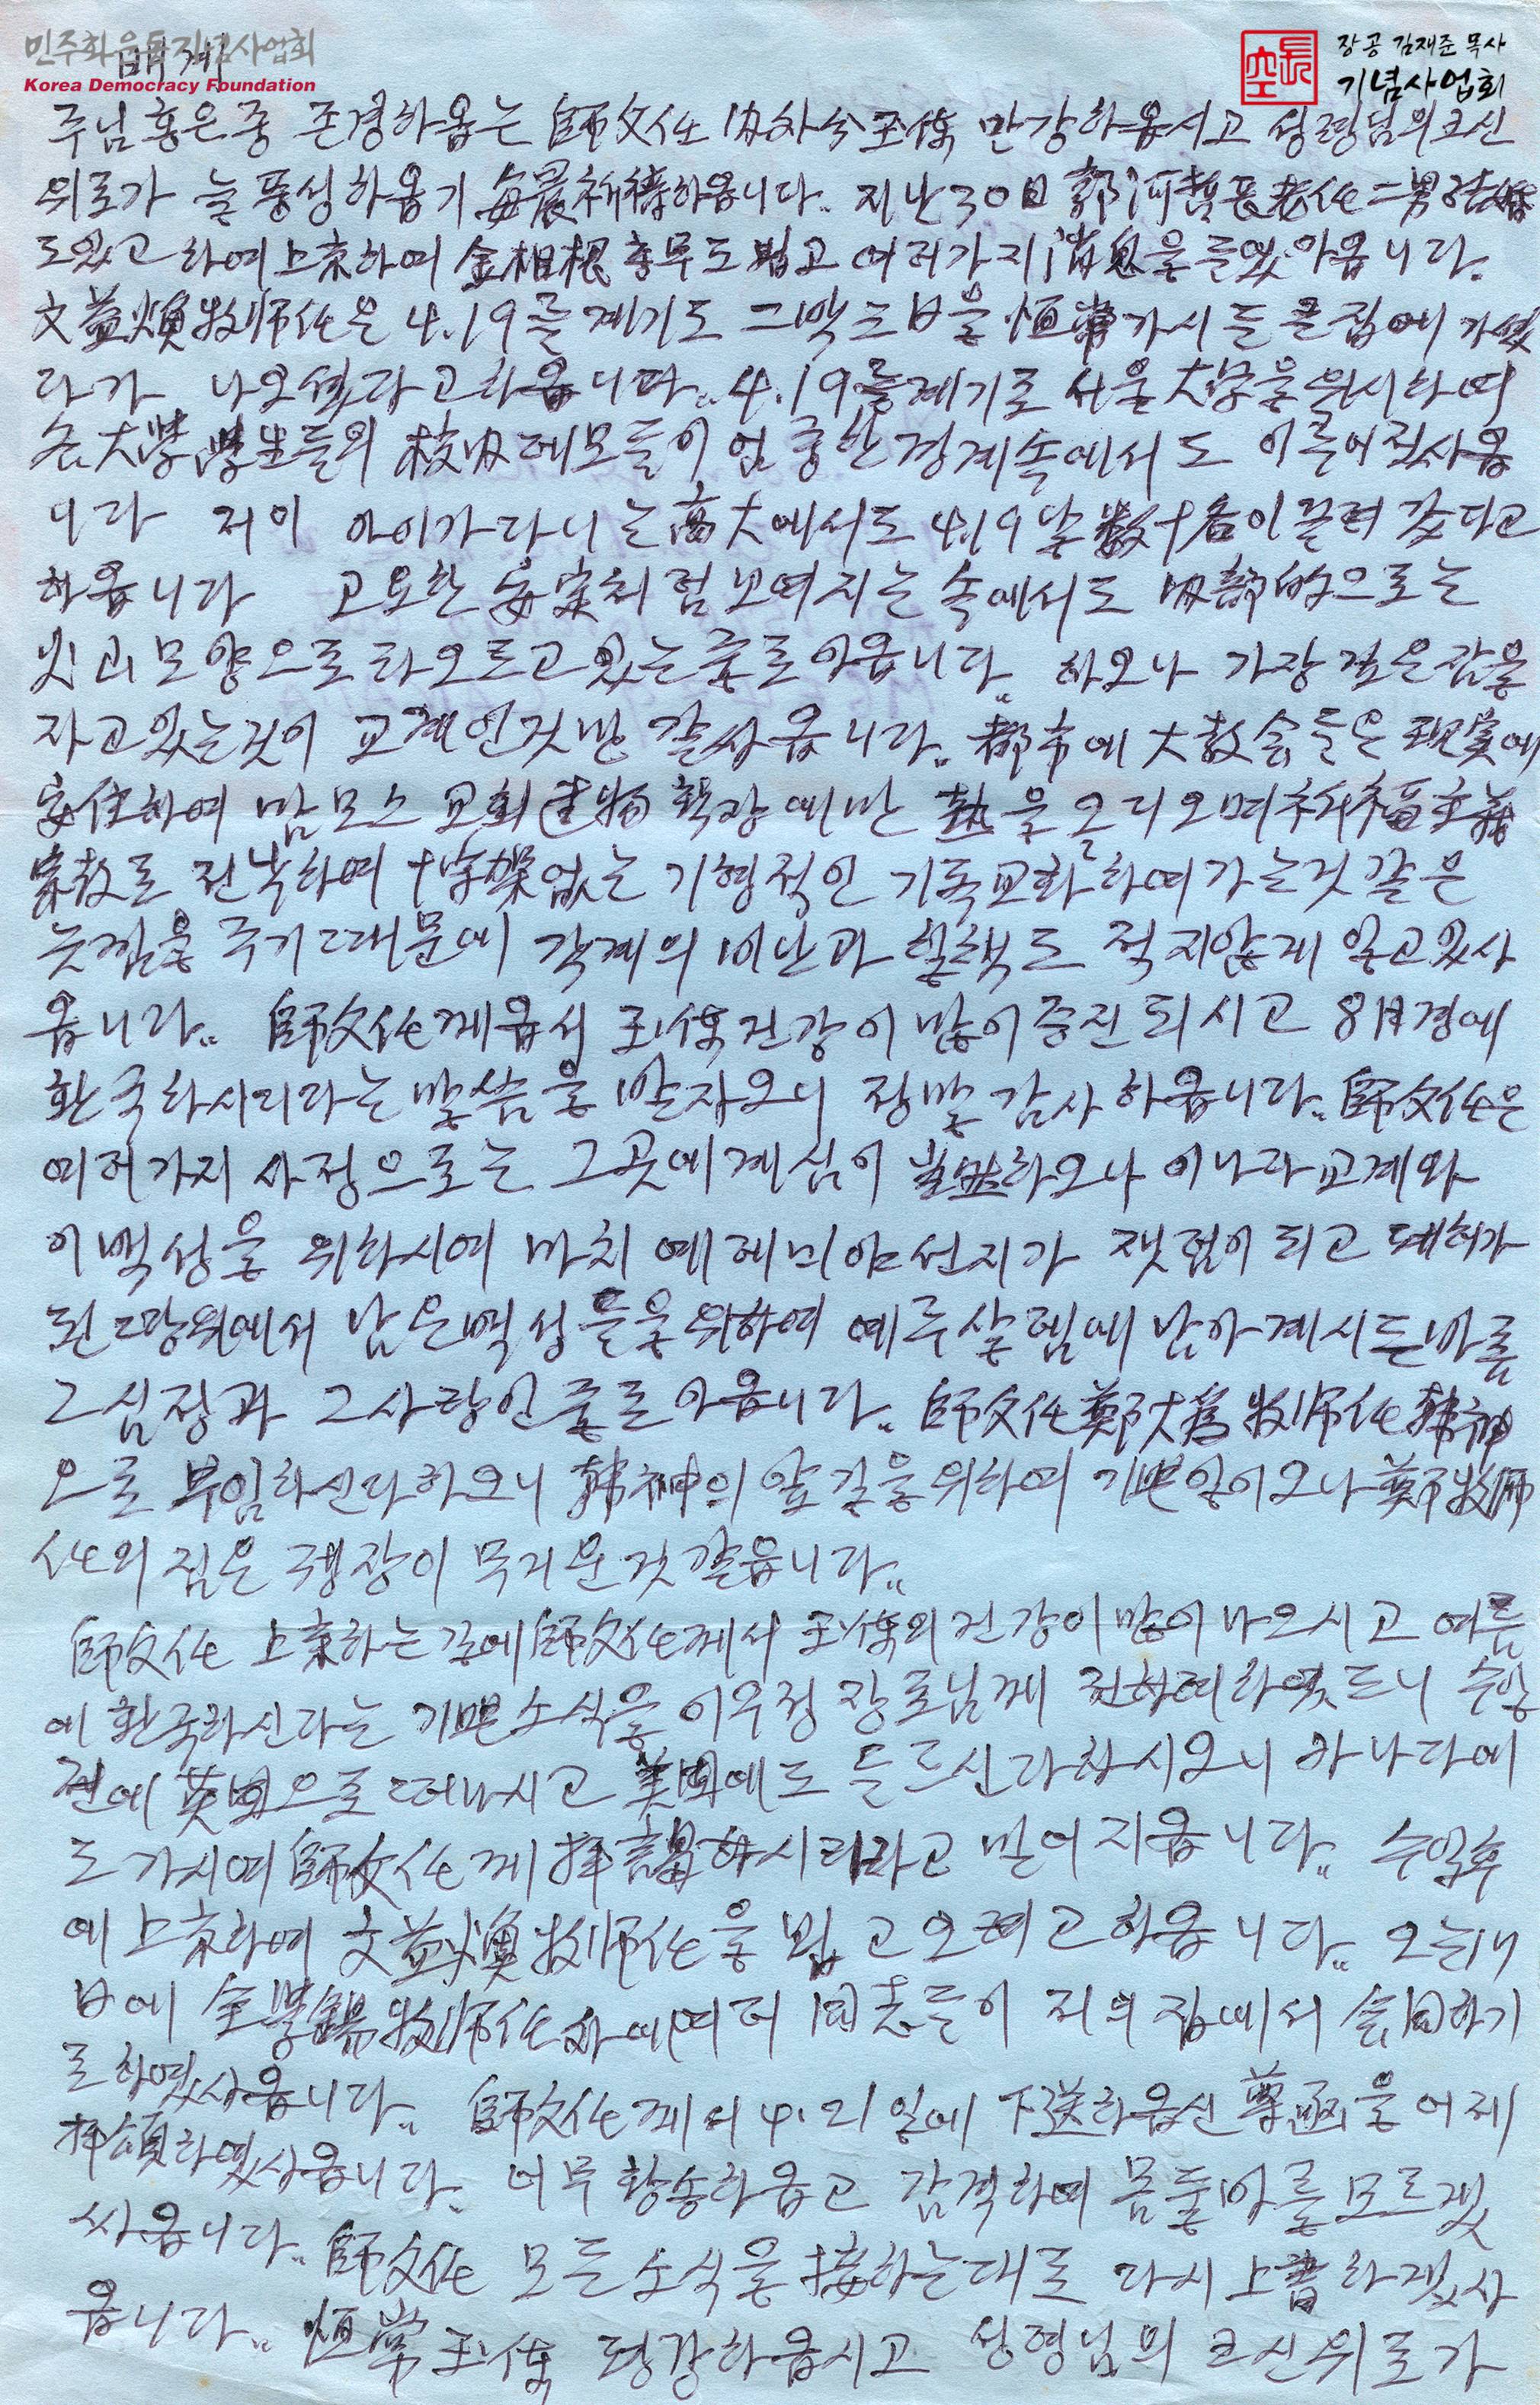 민주화운동기념사업회
Korea Democracy Foundation
장공 김재준 목사
기념사업회
주님 홍은중 존경하옵는 師父任 內外分 玉体 만강하옵시고 성령님의 크신
위로가 늘 풍성하옵기 每晨祈禱하옵니다. 지난 30日 郭 長老任 二男 結婚
도 있고 하여 上京하여 金相根 총무도 뵙고 여러가지 消息을 들었아옵니다.
文益煥牧师任은 4.19를 계기로 그 恒常 가시든 큰집에 가셨
다가 나오셨다고 하옵니다.. 4.19를 계기로 서울大学을 위시하여
各大学 學生들의 校內 데모들이 엄중한 경계속에서도 이루어젔사옵
니다 저이 아이가 다니는 高大에서도 4.19날 數十名이 끌려 갔다고
하옵니다 고요한 처럼 보여지는 속에서도 內部的으로는
모양으로 타오르고 있는줄로 아옵니다.. 하오나 가장 깊은잠을
자고있는것이 교계인것만 같싸옵니다.. 都市에 大敎会들은 現實에
安住하여 맘모스 교회 建物 확장에만 熱을 올리오며 祈福主義
宗敎로 전낙하며 十字架없는 기형적인 기독교화 하여가는것 같은
늣낌을 주기때문에 각계의 비난과 힐책도 적지않게 받고있사
옵니다.. 師父任께옵서 玉体 건강이 많이 증진되시고 8月경에
환국하시리라는 말씀을 받자오니 정말 감사하옵니다.. 師父任은
여러가지 사정으로는 그곳에 계심이 當然하오나 이나라 교계와
이백성을 위하시여 마치 예레미야 선지가 잿덤이 되고 폐허가
된 땅위에서 남은백성들을 위하여 예루살렘에 남아계시든바를
그심정과 그사랑인줄로 아옵니다.. 師父任 鄭大爲牧师任 韩神
으로 부임하신다 하오니 韩神의 앞길을 위하여 기쁜일이오나 鄭牧师
任의 짐은 굉장이 무거운것 같읍니다..
師父任 上京하는 길에 師父任께서 玉体의 건강이 많이 나으시고 여름
에 환국하신다는 기쁜소식을 이우정 장로님께 전하여 하엿드니 수일
전에 英国으로 떠나시고 美国에도 들르신다 하시오니 카나다에
도 가시여 師父任께 拜謁하시리라고 믿어지옵니다.. 수일후
에 上京하여 文益煥牧师任을 뵙고오려고 하옵니다.. 오는
에 金 牧师任 外에 여러 同志들이 저의 집에서 会同하기
로 하엿사옵니다.. 師父任께서 4.21일에 下送하옵신 尊函을 어제
拜領하였사옵니다.. 너무 황송하옵고 감격하여 몸둘바를 모르겠
싸옵니다.. 師父任 모든 소식을 接하는대로 다시 上書하겠사
옵니다.. 恒常 玉体 평강하옵시고 성령님의 크신위로가